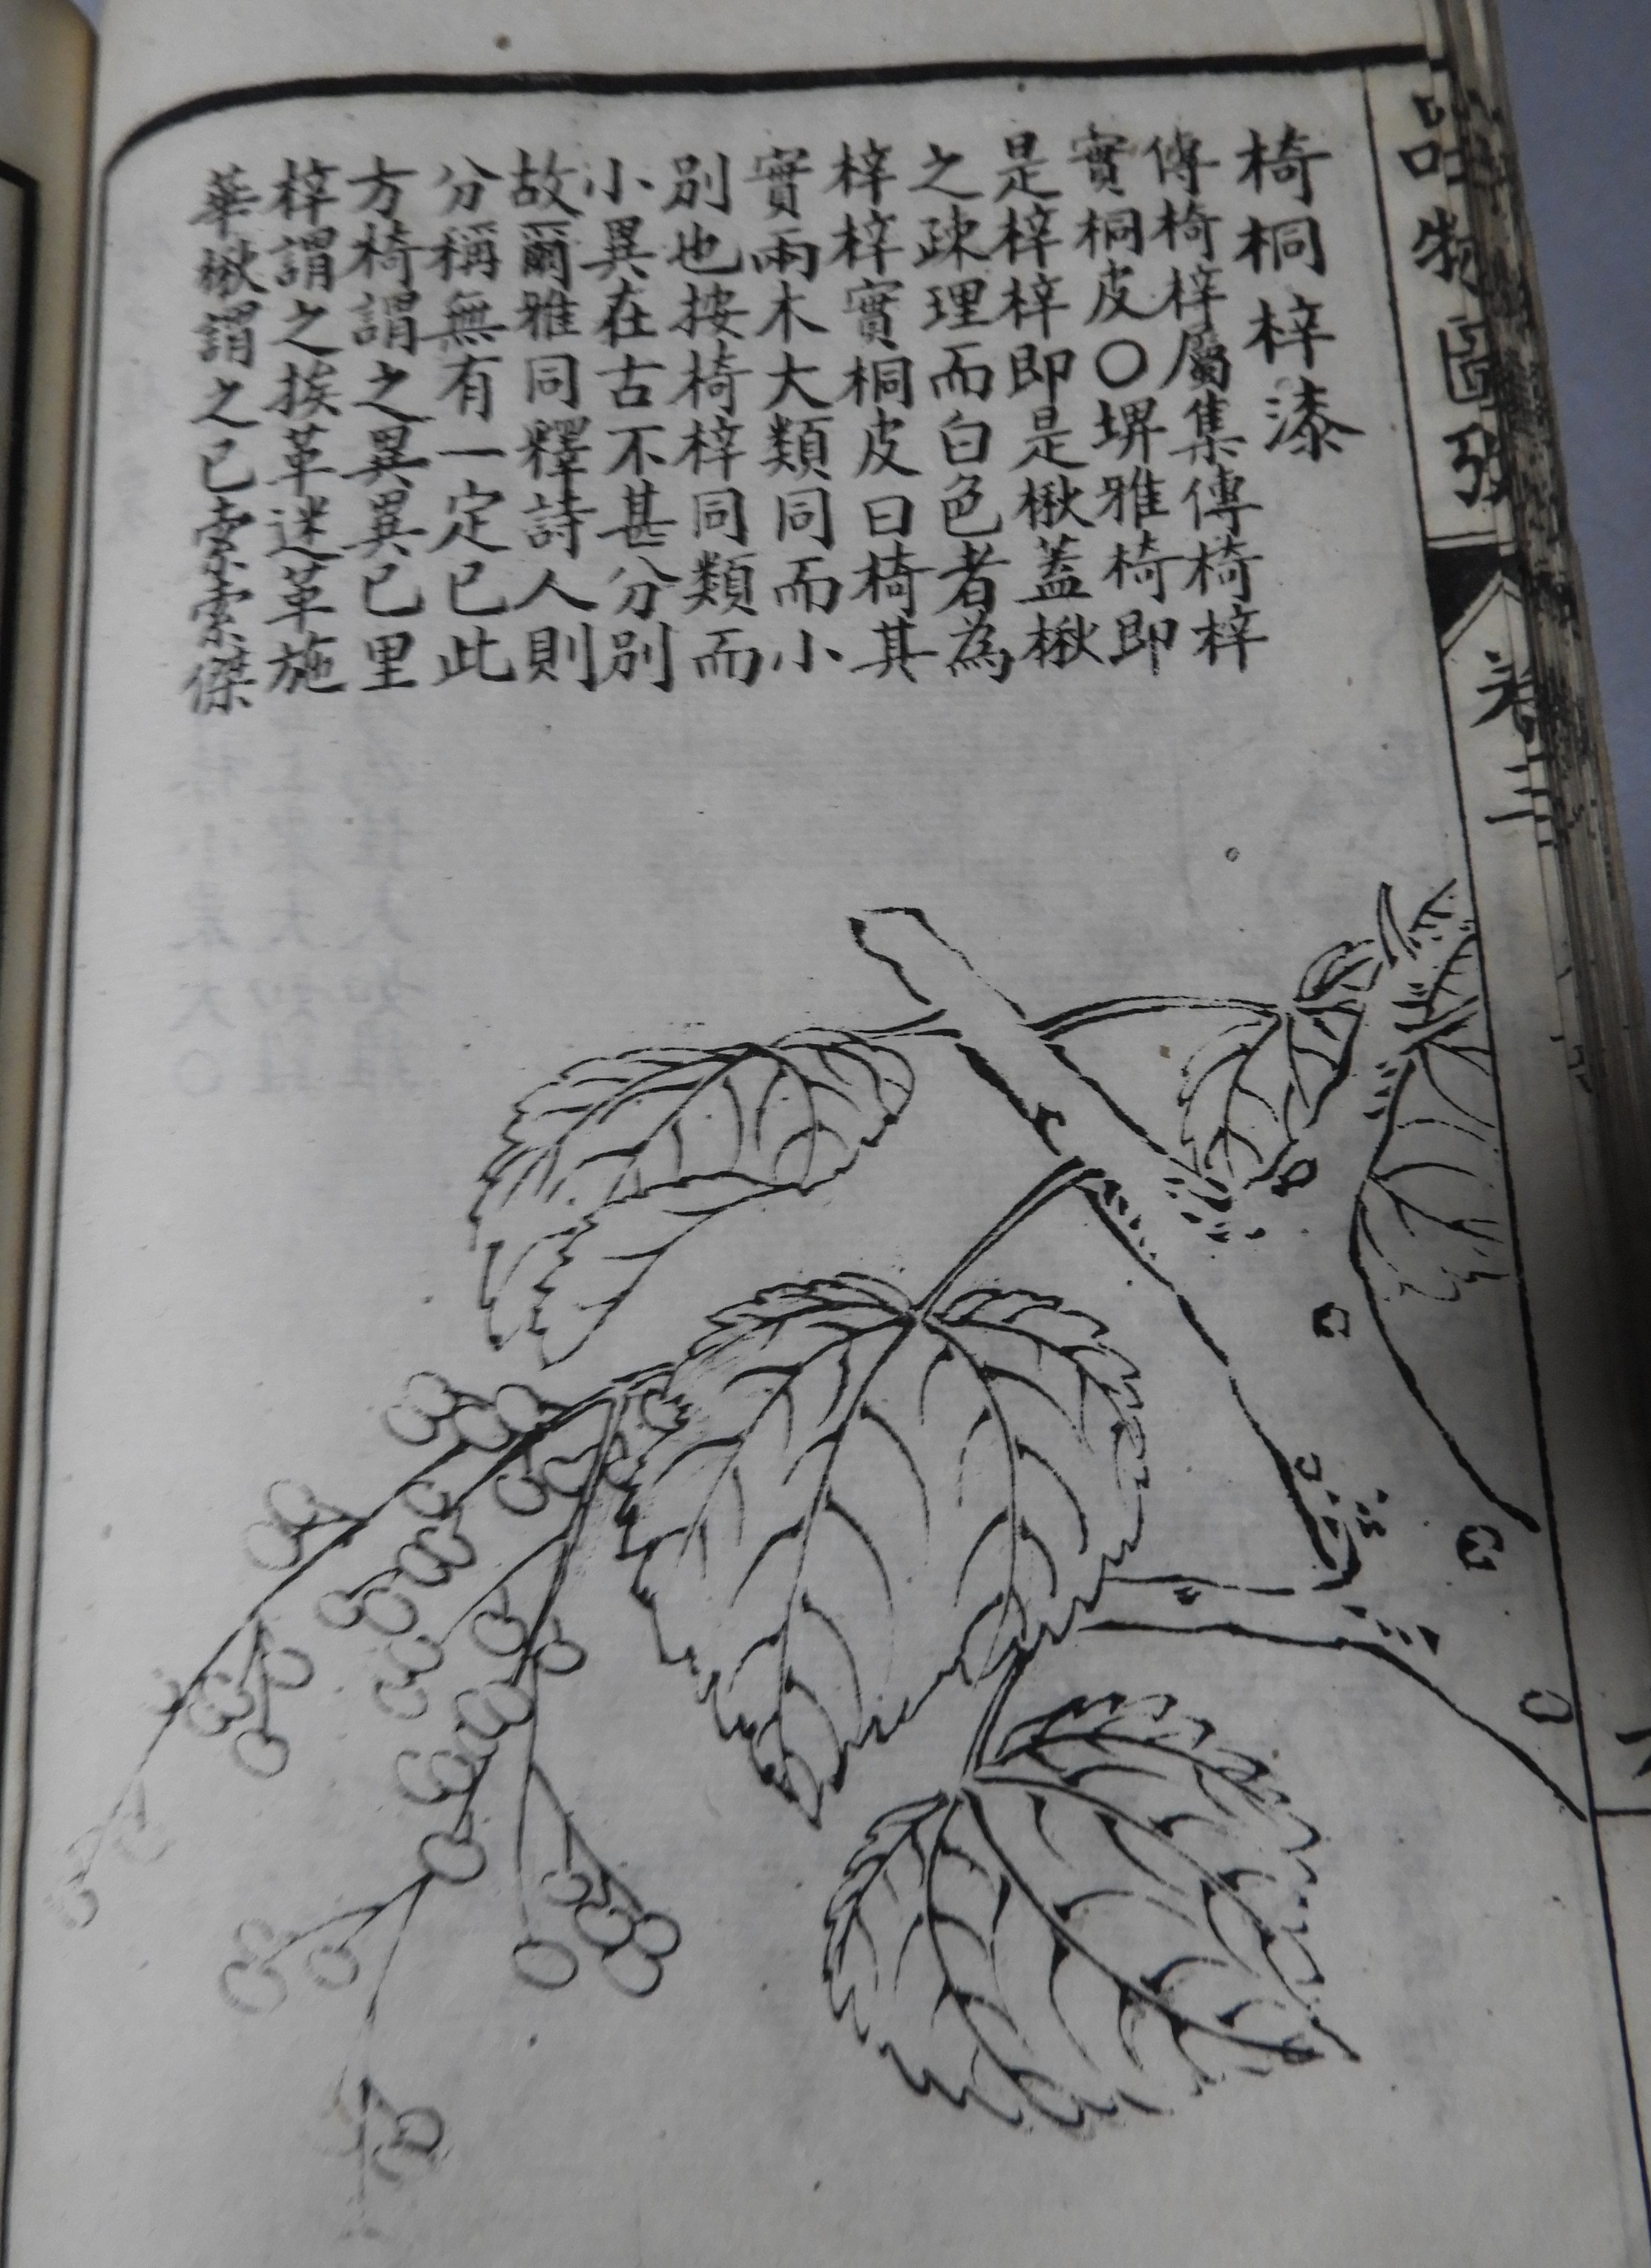 椅桐梓漆
傳椅梓屬集傳椅梓
實桐皮〇埤雅椅即
是梓梓即是楸蓋楸
之疎理而白色者為
梓梓實桐皮曰椅其
實兩木大類同而小
別也按椅梓同類而
小異在古不甚分別
故爾雅同釋詩人則
分稱無有一定已此
方椅謂之異異已里
梓謂之挨革迷革施
華楸謂之已索索傑
品物圖
卷三